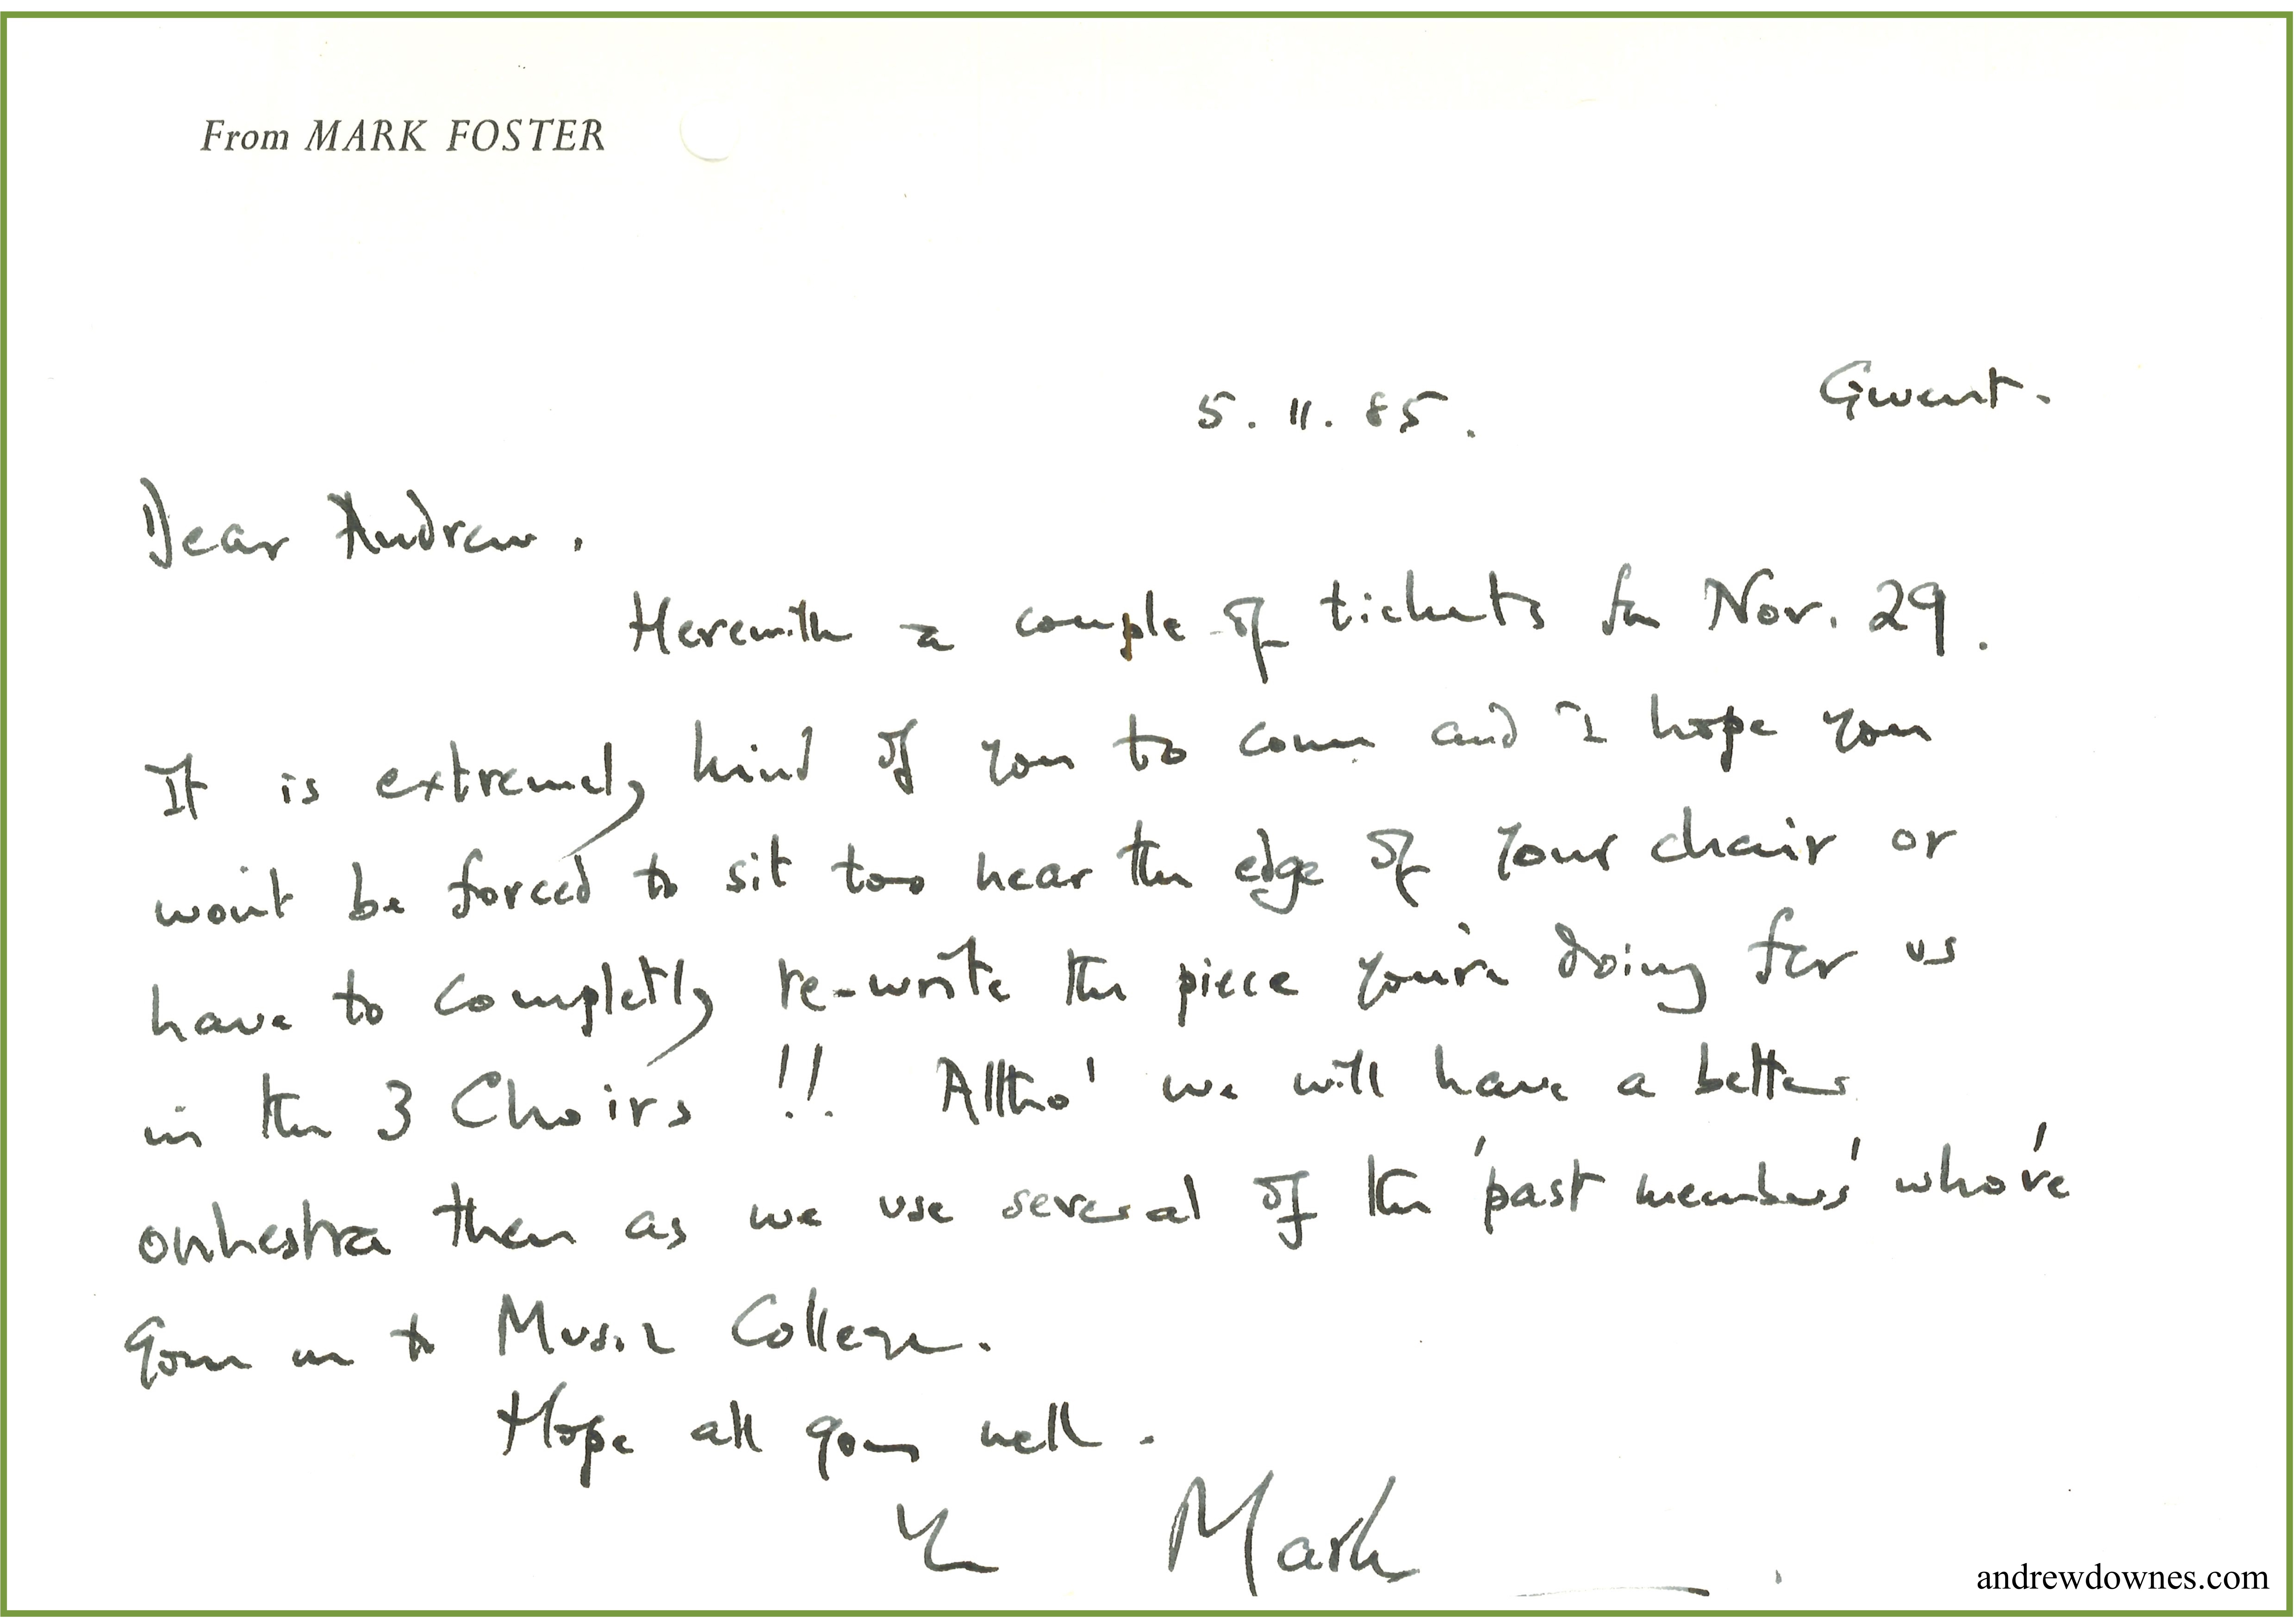 From MARK FOSTER
5.11.85. Gwent.
Dear Andrew.
Herewith a couple of tickets for Nov. 29.
It is extremely kind of you to come and I hope you
won't be forced to sit too near the edge of your chair or
have to completly re-write the piece you're doing for us
in the 3 Choirs !! Alltho' we will have a better
orchestra then as we use several of the 'past members' who've
gone on to Music College.
Hope all goes well.
Mark
andrewdownes.com